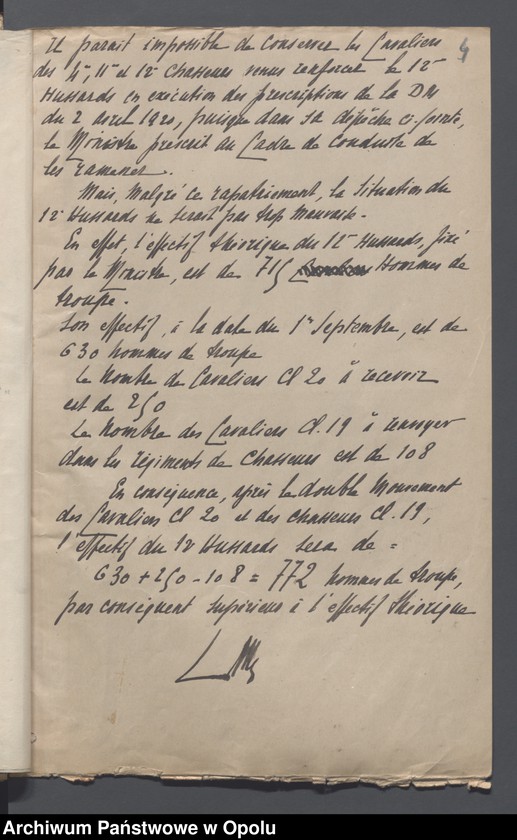 4
Il parait impossible de conserver les Cavaliers
des 4e, 11e et 12e Chasseurs venus renforcer le 12e
Hussards en exécution des prescriptions de la DM
du 2 avril 1920, puisque dans sa dépêche ci-jointe,
le Ministre prescrit au Cadre de Conduite de
les ramener.
Mais, malgré ce rapatriement, la situation du
12e Hussards ne serait pas trop mauvaise.
En effet, l'effectif théorique du 12e Hussards, fixé
par le Ministre, est de 715 Hommes de
troupe.
Son effectif, à la date du 1er Septembre, est de
630 hommes de troupe
Le nombre de Cavaliers Cl 20 à recevoir
est de 250
Le nombre des Cavaliers Cl. 19 à renvoyer
dans les régiments de Chasseurs est de 108
En conséquence, après le double mouvement
des Cavaliers Cl 20 et des chasseurs Cl. 19,
l'effectif du 12e Hussards sera de =
630 + 250 - 108 = 772 hommes de troupe,
par conséquent supérieur à l'effectif théorique
Archiwum Państwowe w Opolu